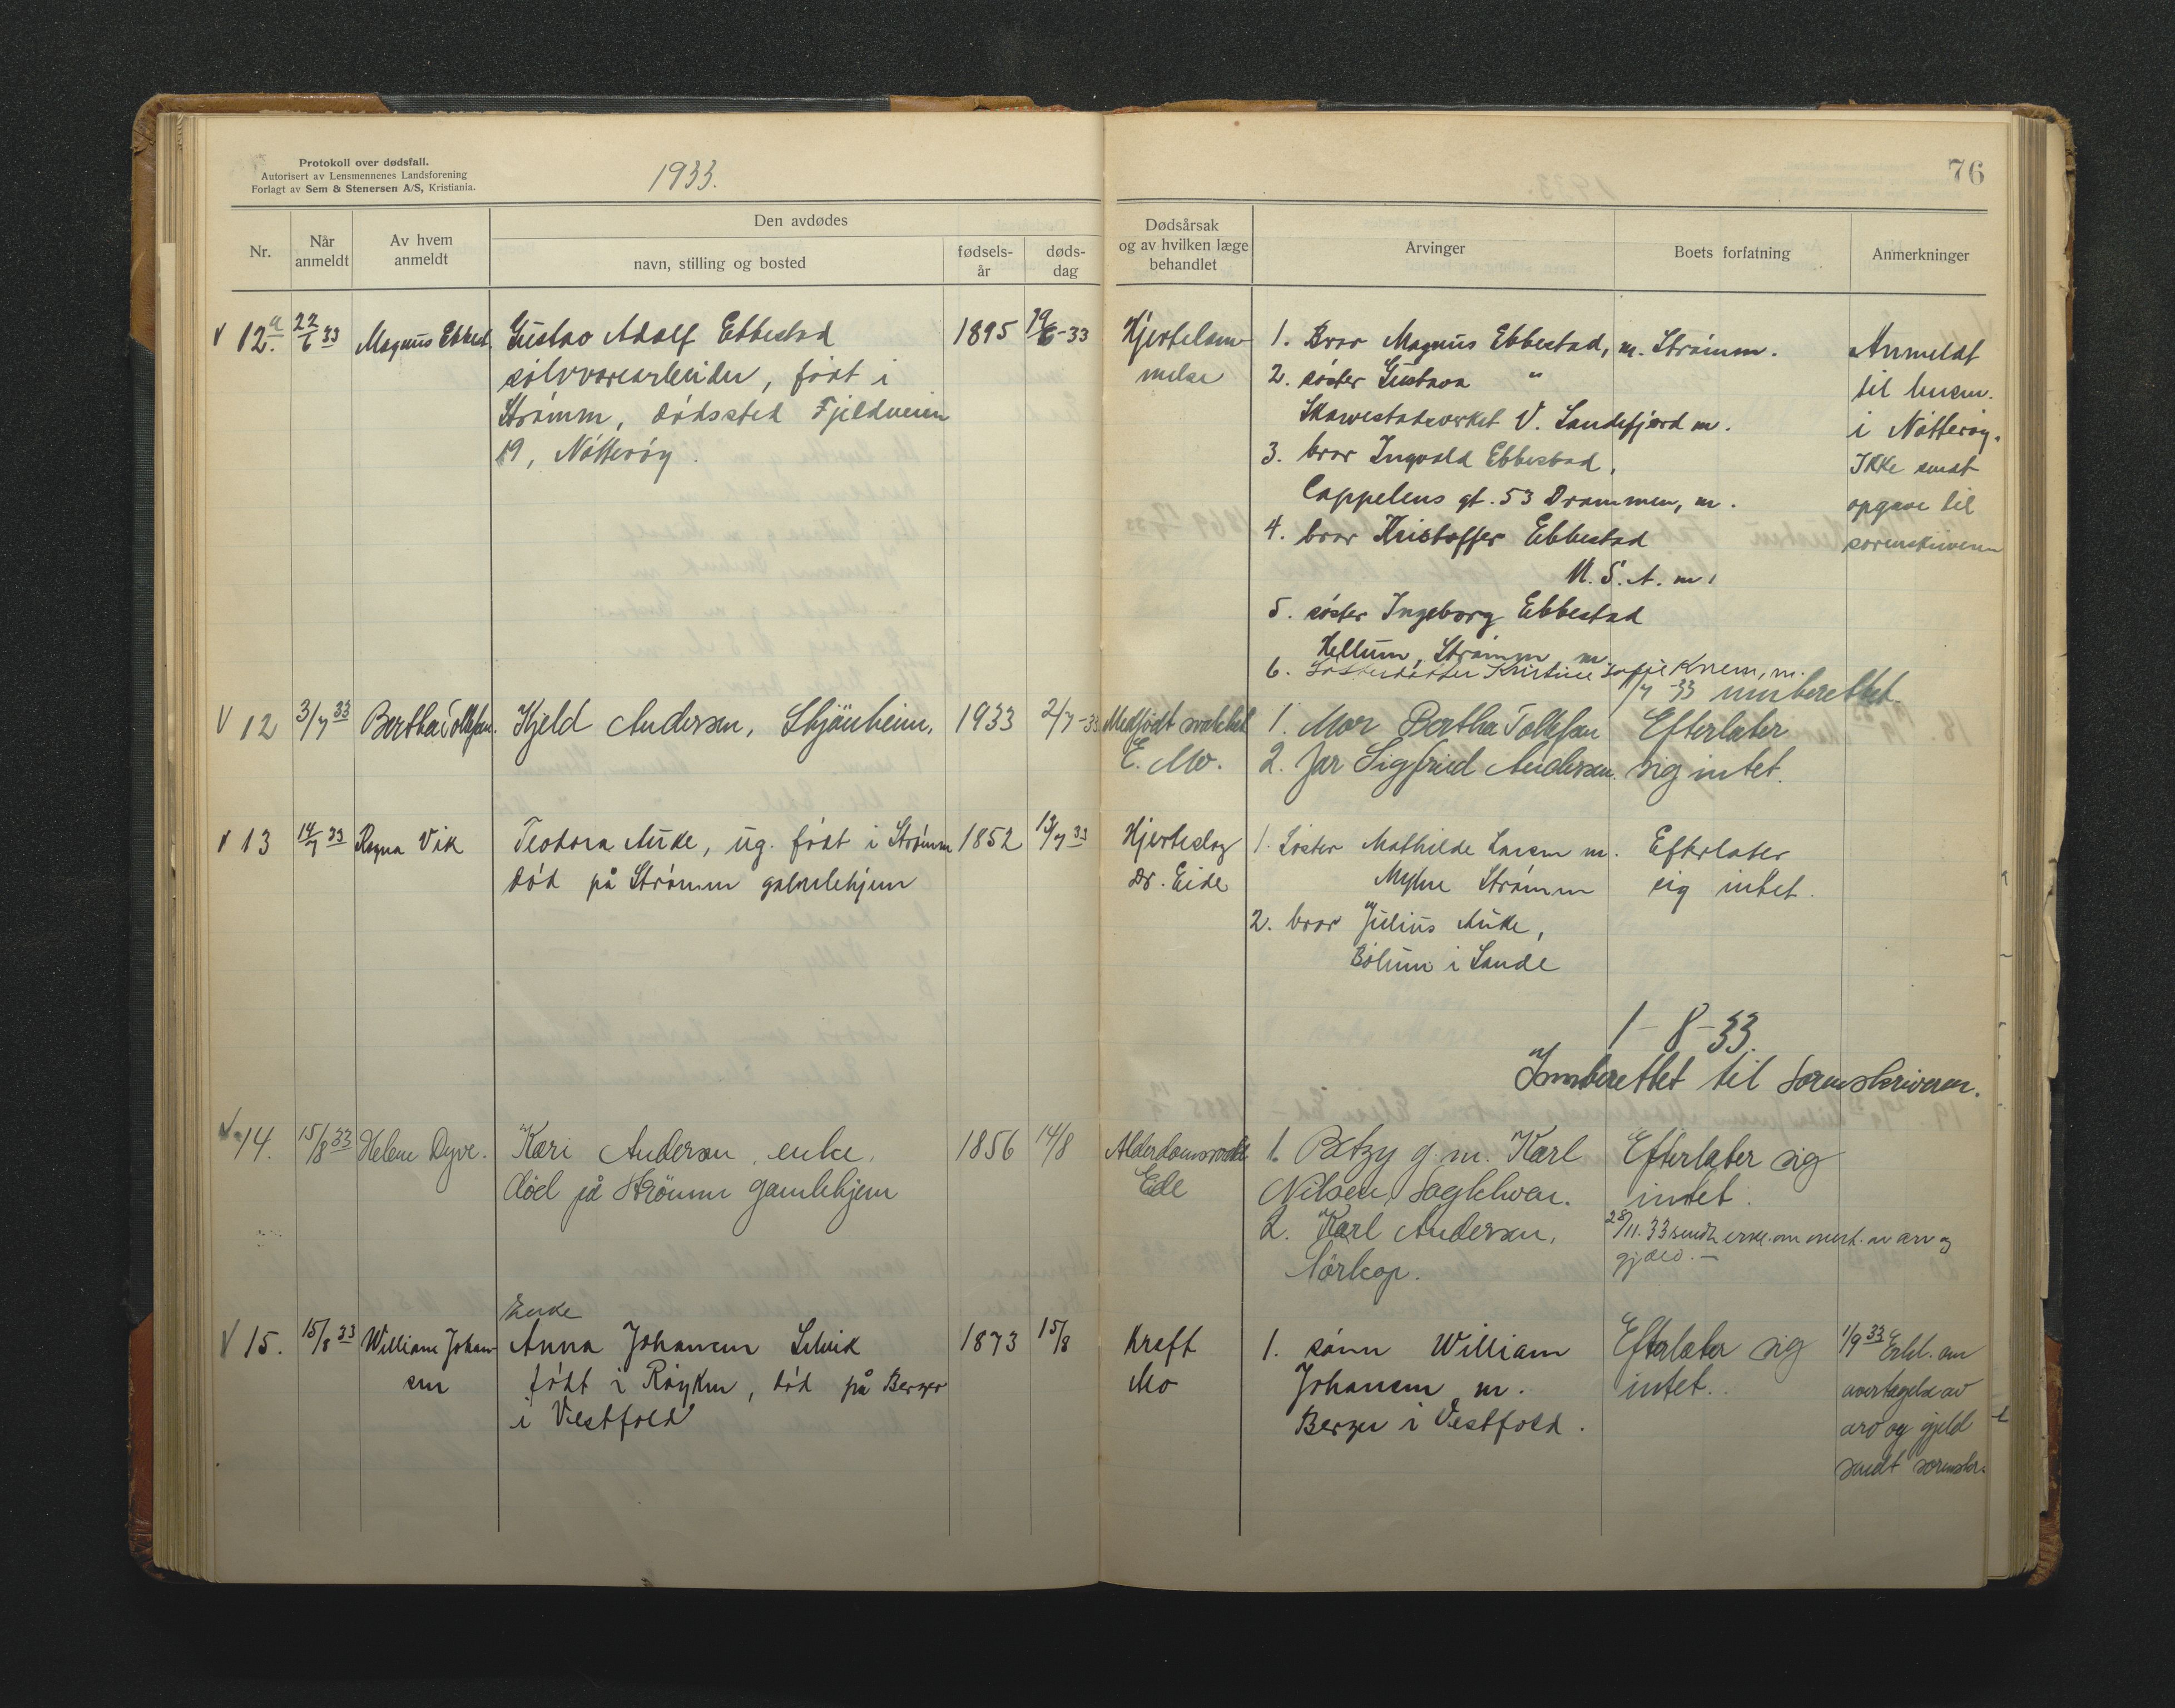 Protokoll over dødsfall.
Autorisert av Lensmennenes Landsforening
Forlagt av Sem & Stenersen A/S, Kristiania.
1933.
76
Nr.
Når anmeldt
Av hvem anmeldt
Den avdødes
navn, stilling og bosted
fødsels-år
døds-dag
Dødsårsak
og av hvilken læge
behandlet
Arvinger
Boets forfatning
Anmerkninger
12.a 22/6 33 Magnus Ebbest.
Gustav Adolf Ebbestad
sølvvarearbeider, født i
Strømm, dødssted Fjeldveien
19, Nøtterøy.
1895 19/6-33
Hjertelam-
melse
1. Bror Magnus Ebbestad, m. Strømm.
2. søster Gustava "
V. Sandefjord m.
3. bror Ingvald Ebbestad,
Cappelens gt. 53 Drammen, m.
4. bror Kristoffer Ebbestad
U.S.A. m.
5. søster Ingeborg Ebbestad
Hellum, Strømm m.
6. Søsterdatter Kristine Sofie Knem, m.
Anmeldt
til lensm.
i Nøtterøy.
Ikke sendt
opgave til
sorenskriveren
1/7 33 innberettet.
12 3/7 33 Bertha Tollefsen.
Kjeld Andersen, Skjønheim.
1933 2/7-33
Medfødt svakhet
E. Mo.
1. Mor Bertha Tollefsen
2. Far Sigfried Andersen.
Efterlater
sig intet.
13 14/7 33 Ragna Vik
Teodora Auke, ug. født i Strømm
død på Strømm gamlehjem
1852 13/7 33
Hjerteslag
Dr. Eide
1. Søster Mathilde Larsen m.
Myhre Strømm
2. bror Julius Auke,
Bølum i Sande
Efterlater
sig intet.
1-8-33.
Innberettet til Sorenskriveren.
14. 15/8 33 Helene Dyve.
Kari Andersen, enke,
död på Strömm gamlehjem
1856 14/8
Eide
1. Betzy g. m. Karl
Nilsen,
2. Karl Andersen,
Efterlater sig
intet.
28/11.33 sendt erkl. om overt. av arv og
gjeld.-
Enke
15. 15/8 33 William Johan-
sen
Anna Johansen Selvik
født i Røyken, død på Berger
i Vestfold
1873 15/8
Kreft
Mo
1. sønn William
Johansen m.
Berger i Vestfold.
Efterlater sig
intet.
1/9 33 Erkl. om
overtagelse av
arv og gjeld
sendt sorenskr.